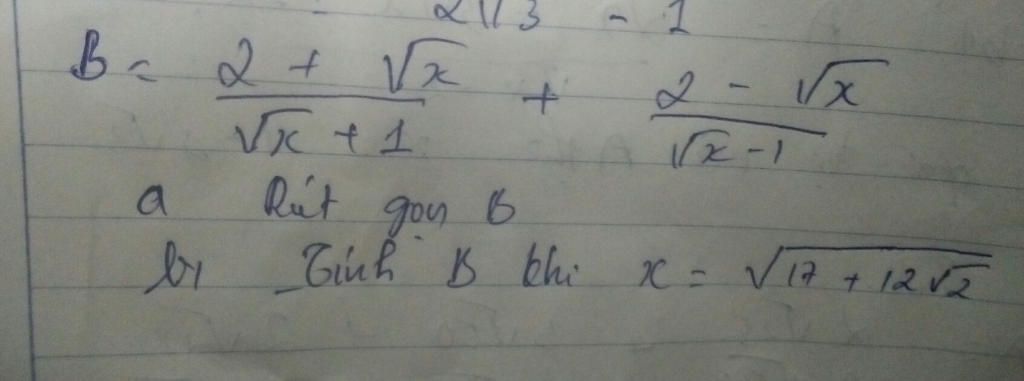 2√3 - 1
B = (2 + √x)/(√x + 1) + (2 - √x)/(√x - 1)
a Rút gọn B
b, Tính B khi x = √(17 + 12√2)